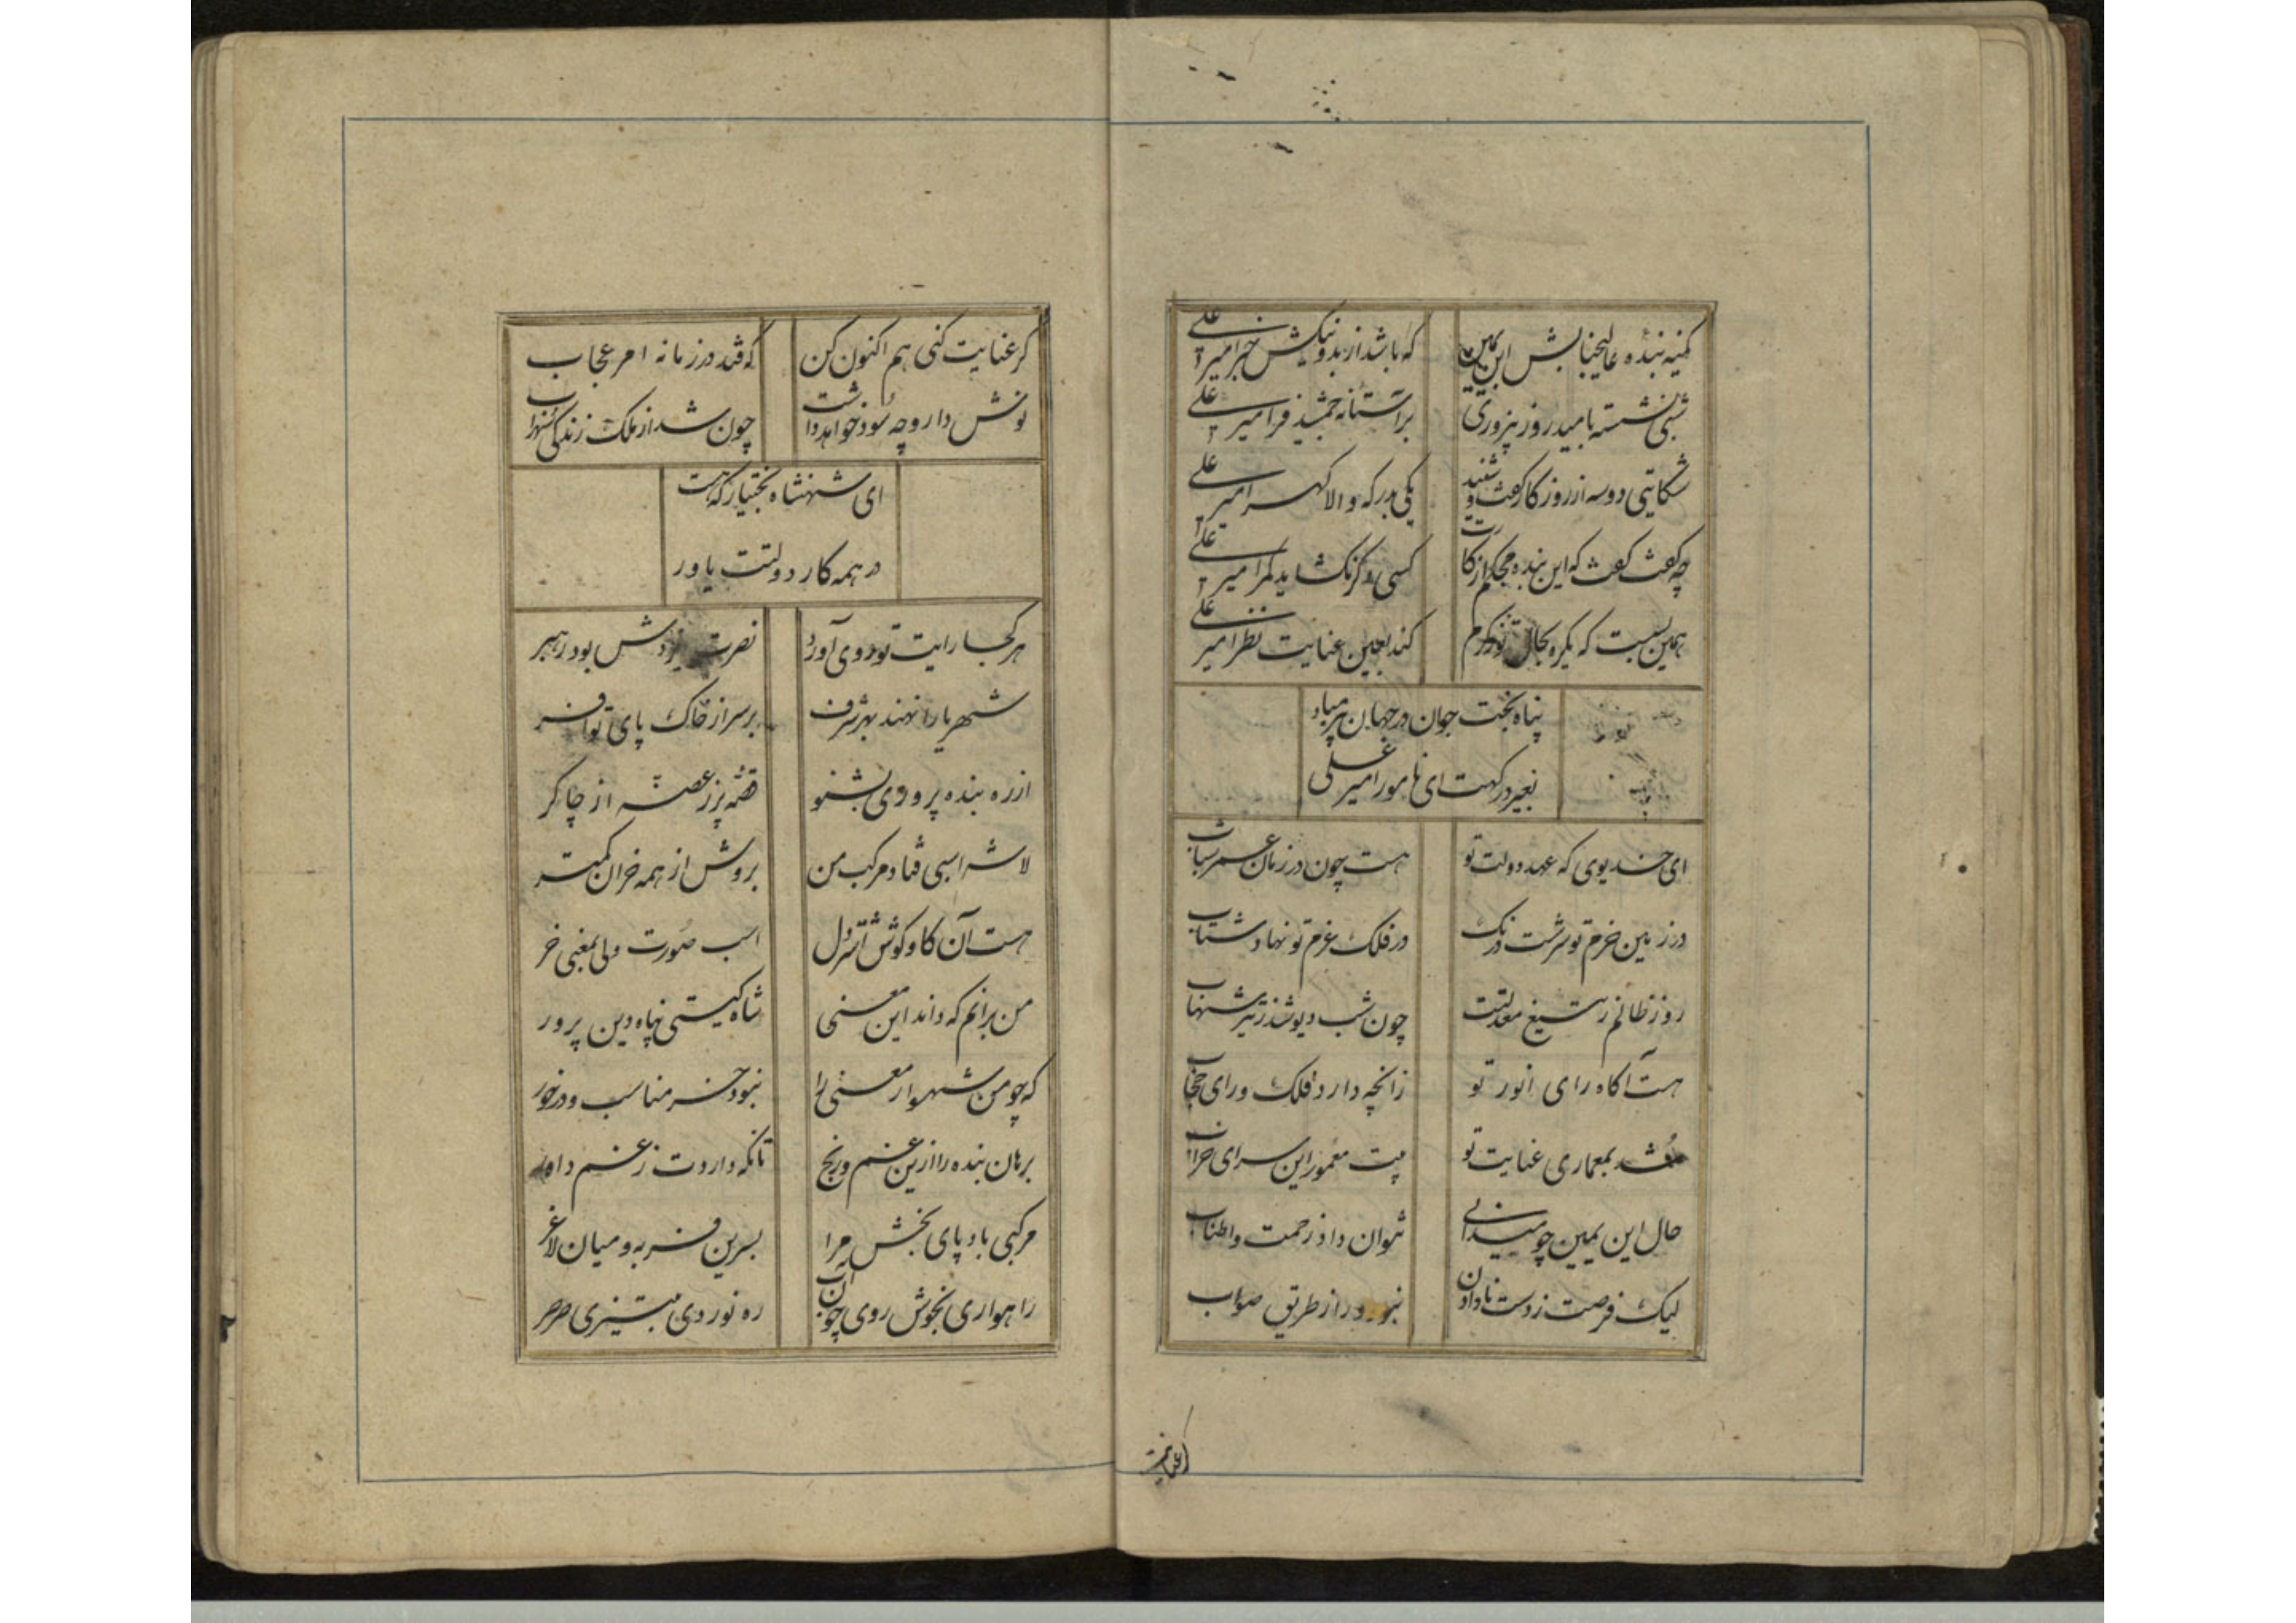 کمینه بنده عالیجنابش ابن یمین
که باشد از بد و نیکش خبر امیر علی
شبی نشسته بامید روز پیروزی
بر آستانه جمشید فر امیر علی
شکایتی دو سه از روزکار کفت و شنید
یکی بدرکه والا کهر امیر علی
چه کفت کفت که این بنده محکم از کارت
کسی دکر نکشاید مکر امیر علی
همین بسست که یکره بحال تو ز کرم
کند بعین عنایت نظر امیر علی
پناه بخت جوان در جهان پیر مباد
بغیر درکهت ای نامور امیر علی
ای خدیوی که عهد دولت تو
هست چون در زمان عمر شباب
در زمین حزم تو سرشت درنک
در فلک عزم تو نهاد شتاب
روز ظالم ز تیغ معدلتت
چون شب دیو شد ز تیر شهاب
هست آکاه رای انور تو
زانچه دارد فلک ورای حجاب
شد بمعماری عنایت تو
بیت معمور این سرای خراب
حال ابن یمین چو میدانی
نتوان داد زحمت و اطناب
لیک فرصت ز دست نادادن
نبود دور از طریق صواب
کر عنایت
کر عنایت کنی هم اکنون کن
که فتد در زمانه امر عجاب
نوش دارو چه سود خواهد داشت
چون شد از ملک زندکی سهراب
ای شهنشاه بختیار که هست
در همه کار دولتت یاور
هر کجا رایت تو روی آورد
نصرت ایزدش بود رهبر
شهریارا نهند بهر شرف
بر سر از خاک پای تو افسر
از ره بنده پروری بشنو
قصه پر ز غصه از چاکر
لاشه اسبی فتاد مرکب من
بروش از همه خران کمتر
هست آن کاو کوش اشتر دل
اسب صورت ولی بمعنی خر
من برانم که داند این معنی
شاه کیتی پناه دین پرور
که چو من شهسوار معنی را
نبود خر مناسب و درخور
برهان بنده را ازین غم و رنج
تا نکه داردت ز غم داور
مرکبی باد پای بخش مرا
بسرین فربه و میان لاغر
راهواری بخوش روی چون آب
ره نوردی بتیزی صرصر